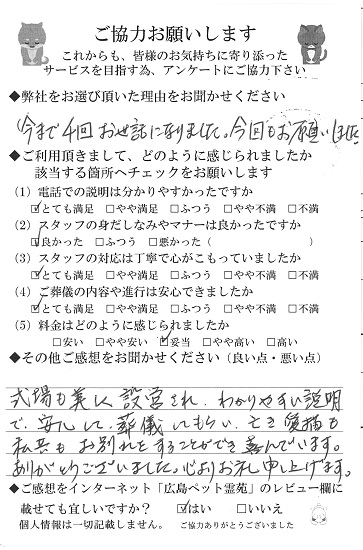 ご協力お願いします
これからも、皆様のお気持ちに寄り添った
サービスを目指す為、アンケートにご協力下さい
◆弊社をお選び頂いた理由をお聞かせください
今まで4回お世話になりました。今回もお願いしました
◆ご利用頂きまして、どのように感じられましたか
該当する箇所へチェックをお願いします
（1）電話での説明は分かりやすかったですか
☑とても満足 □やや満足 □ふつう □やや不満 □不満
（2）スタッフの身だしなみやマナーは良かったですか
☑良かった □ふつう □悪かった（ ）
（3）スタッフの対応は丁寧で心がこもっていましたか
☑とても満足 □やや満足 □ふつう □やや不満 □不満
（4）ご葬儀の内容や進行は安心できましたか
☑とても満足 □やや満足 □ふつう □やや不満 □不満
（5）料金はどのように感じられましたか
□安い □やや安い ☑妥当 □やや高い □高い
◆その他ご感想をお聞かせください（良い点・悪い点）
式場も美しく設営され、わかりやすい説明
で、安心して葬儀してもらい、亡き愛猫も
私共もお別れをすることができ喜んでいます。
ありがとうございました。心よりお礼申し上げます。
◆ご感想をインターネット「広島ペット霊苑」のレビュー欄に
載せても宜しいですか？ ☑はい □いいえ
個人情報は一切記載しません。 ご協力ありがとうございました